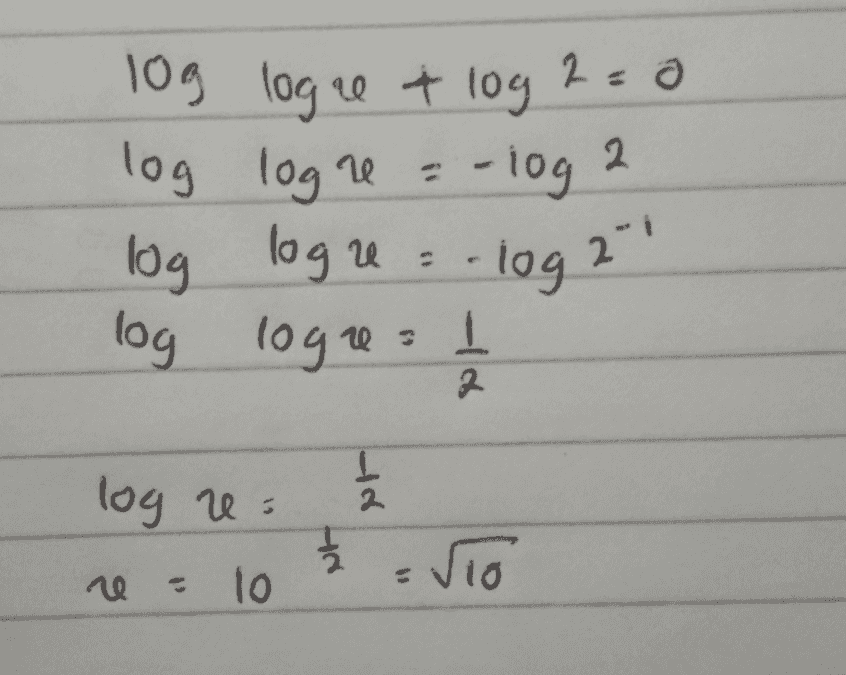 log log x + log 2 = 0
log log x = - log 2
log log x = - log 2⁻¹
log log x = 1/2
log x = 1/2
x = 10^(1/2) = √10